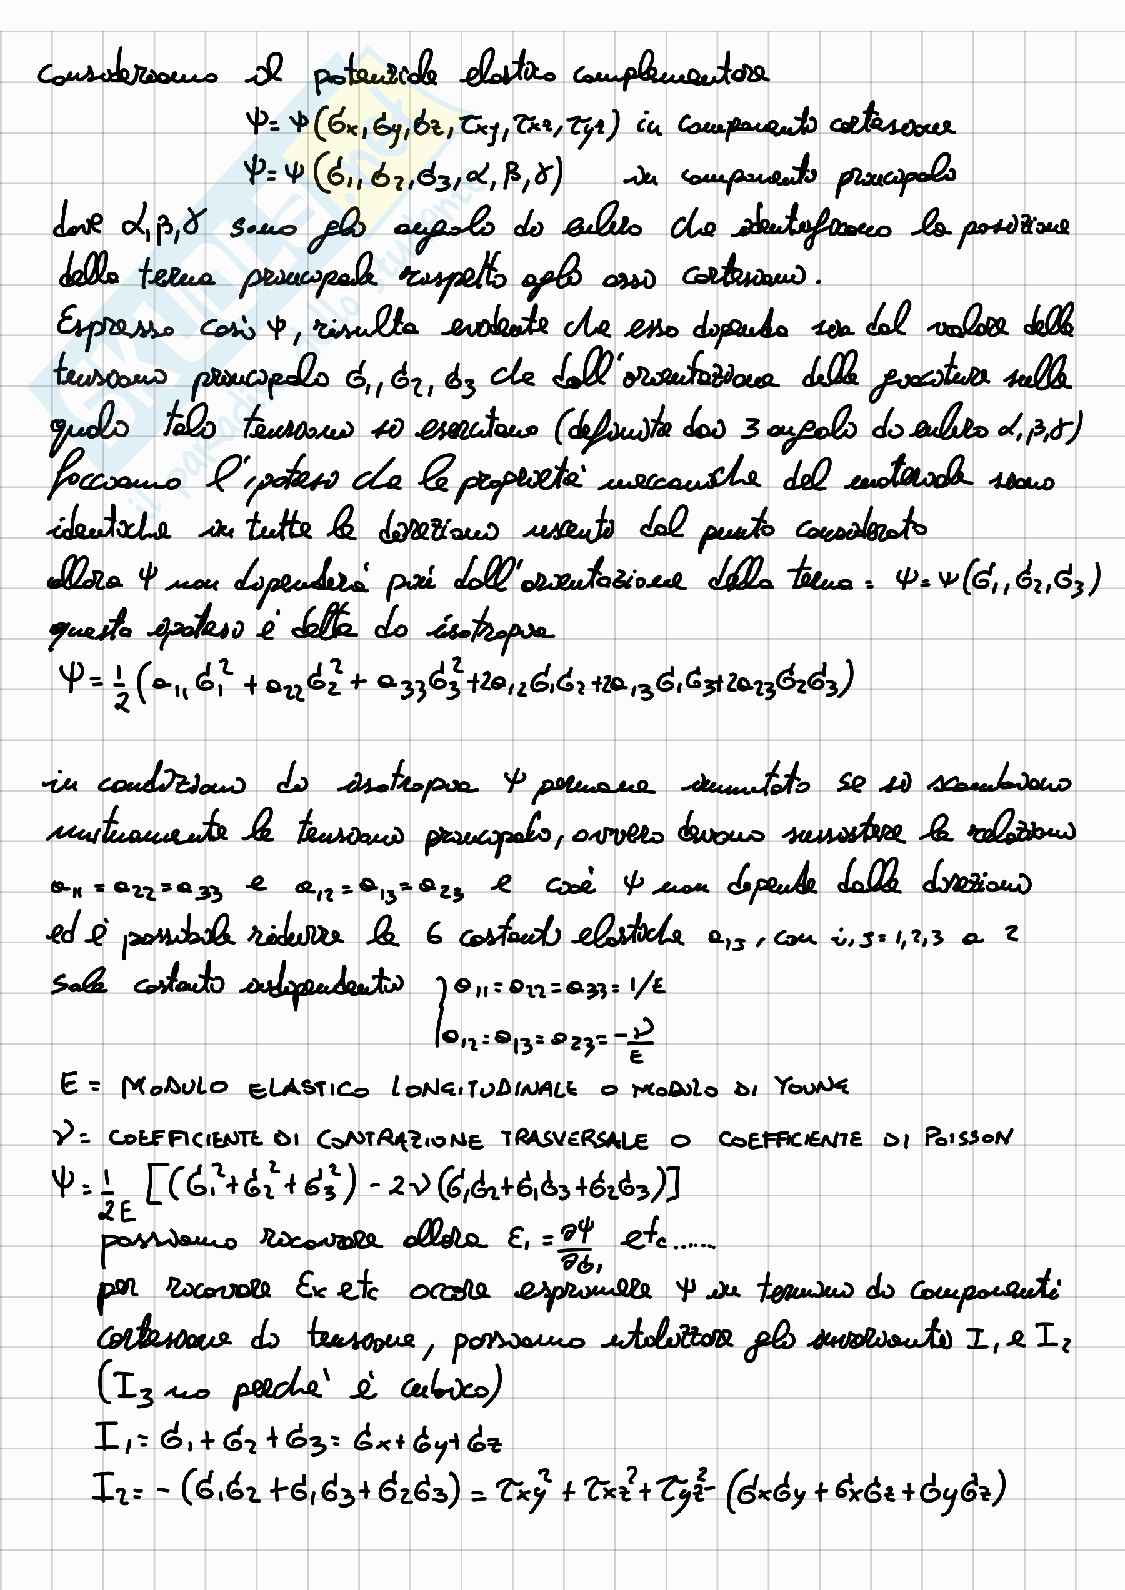 consideriamo il potenziale elastico complementare
Ψ=Ψ(σx,σy,σz,τxy,τxz,τyz) in componenti cartesiane
Ψ=Ψ(σ1,σ2,σ3,α,β,γ) in componenti principali
dove α,β,γ sono gli angoli di eulero che identificano la posizione
della terna principale rispetto agli assi cartesiani.
Espresso così Ψ, risulta evidente che esso dipenda sia dal valore delle
tensioni principali σ1,σ2,σ3 che dall'orientazione della giacitura sulle
quali tali tensioni si esercitano (definita dai 3 angoli di eulero α,β,γ)
facciamo l'ipotesi che le proprietà meccaniche del materiale siano
identiche in tutte le direzioni uscenti dal punto considerato
allora Ψ non dipenderà più dall'orientazione della terna = Ψ=Ψ(σ1,σ2,σ3)
questa ipotesi è detta di isotropia
Ψ=1/2(a11σ1²+a22σ2²+a33σ3²+2a12σ1σ2+2a13σ1σ3+2a23σ2σ3)
in condizioni di isotropia Ψ permane immutato se si scambiano
mutuamente le tensioni principali, ovvero devono sussistere le relazioni
a11=a22=a33 e a12=a13=a23 e cioè Ψ non dipende dalle direzioni
ed è possibile ridurre le 6 costanti elastiche aij, con i,j=1,2,3 a 2
sole costanti indipendenti { a11=a22=a33=1/E
a12=a13=a23=-ν/E
E= MODULO ELASTICO LONGITUDINALE O MODULO DI YOUNG
ν= COEFFICIENTE DI CONTRAZIONE TRASVERSALE O COEFFICIENTE DI POISSON
Ψ=1/2E [(σ1²+σ2²+σ3²)-2ν(σ1σ2+σ1σ3+σ2σ3)]
possiamo ricavare allora ε1=∂Ψ/∂σ1 etc......
per ricavare εx etc occore esprimere Ψ in termini di componenti
cartesiane di tensione, possiamo utilizzare gli invarianti I1 e I2
(I3 no perchè è cubico)
I1=σ1+σ2+σ3=σx+σy+σz
I2=-(σ1σ2+σ1σ3+σ2σ3)=τxy²+τxz²+τyz²-(σxσy+σxσz+σyσz)